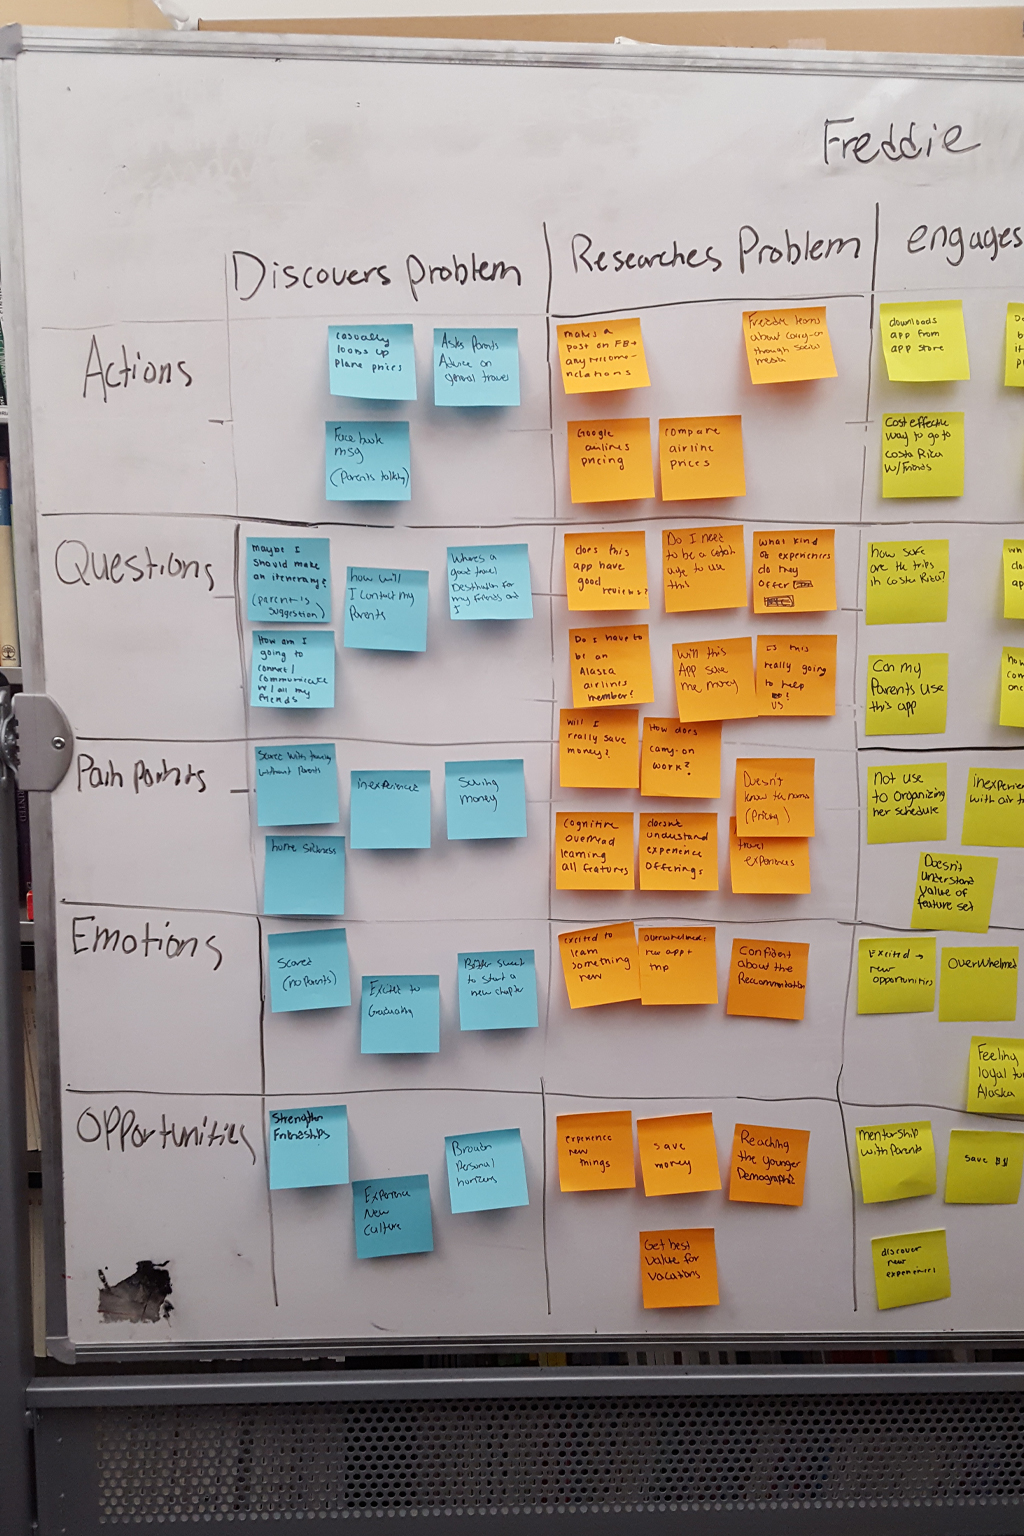 Freddie
Discovers problem
Researches Problem
engages
Actions
casually
looks up
plane prices
Asks Parents
Advice on
general travel
Facebook
msg
(Parents talking)
makes a
post on FB →
any recomme-
ndations
Freddie learns
about carry-on
through social
media
Google
airlines
pricing
compare
airline
prices
downloads
app from
app store
Cost effective
way to go to
Costa Rica
w/ friends
Questions
maybe I
should make
an itenerary?
(parent's
suggestion)
how will
I contact my
Parents
Where's a
good travel
Destination for
my friends and
I
How am I
going to
connect/
communicate
w/ all my
friends
does this
app have
good
reviews?
Do I need
to be a certain
age to use
this
what kind
of experiences
do they
offer
Do I have to
be an
Alaska
airlines
member?
Will this
App save
me money
Is this
really going
to help
us
?
will I
really save
money?
How does
carry-on
work?
how safe
are the trips
in Costa Rica?
Can my
Parents use
this app
Pain points
Scared with traveling
without parents
inexperienced
Saving
money
home sickness
Doesn't
know the norms
(Pricing)
cognitive
overload
learning
all features
doesn't
understand
experience
offerings
travel
experiences
Not use
to organizing
her schedule
inexperie
with air t
Doesn't
understand
value of
feature set
Emotions
Scared
(no Parents)
Excited to
Graduating
Bitter sweet
to start a
new chapter
excited to
learn
something
new
overwhelmed:
new app +
trip
Confident
about the
Recommendation
Excited →
new
opportunities
Overwhelmed
Feeling
loyal to
Alaska
Opportunities
Strengthen
Friendships
Experience
New
Culture
Broaden
Personal
horizons
experience
new
things
save
money
Reaching
the younger
Demographic
Get best
value for
vacations
mentorship
with Parents
save $$
discover
new
experiences